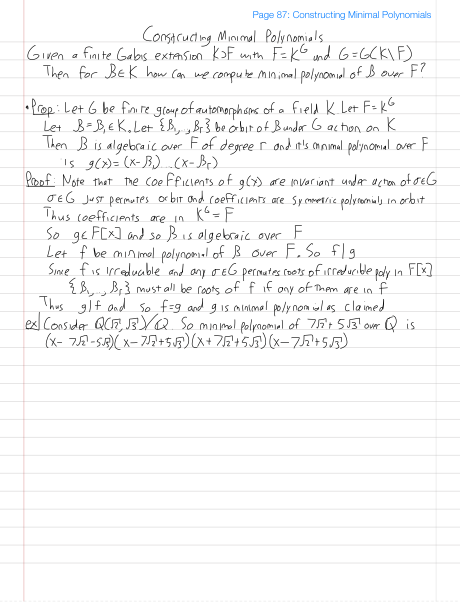 Page 87: Constructing Minimal Polynomials
Constructing Minimal Polynomials
Given a finite Galois extension K⊃F with F=K^G and G=G(K\F)
Then for B∈K how can we compute minimal polynomial of B over F?
• Prop: Let G be finite group of automorphisms of a field K. Let F=K^G
Let B=B₁∈K. Let {B₁,., Br} be orbit of B under G action on K
Then B is algebraic over F of degree r and it's minimal polynomial over F
is g(x)=(x-B₁)...(x-Br)
Proof: Note that the coefficients of g(x) are invariant under action of σ∈G
σ∈G just permutes orbit and coefficients are symmetric polynomials in orbit
Thus coefficients are in K^G=F
So g∈F[x] and so B is algebraic over F
Let f be minimal polynomial of B over F. So f|g
Since f is irreducable and any σ∈G permutes roots of irreducible poly in F[x]
{B₁,., Br} must all be roots of f if any of them are in f
Thus g|f and so f=g and g is minimal polynomial as claimed
ex| Consider Q(√2, √3)/Q So minimal polynomial of 7√2+5√3 over Q is
(x-7√2-5√3)(x-7√2+5√3)(x+7√2+5√3)(x-7√2+5√3)